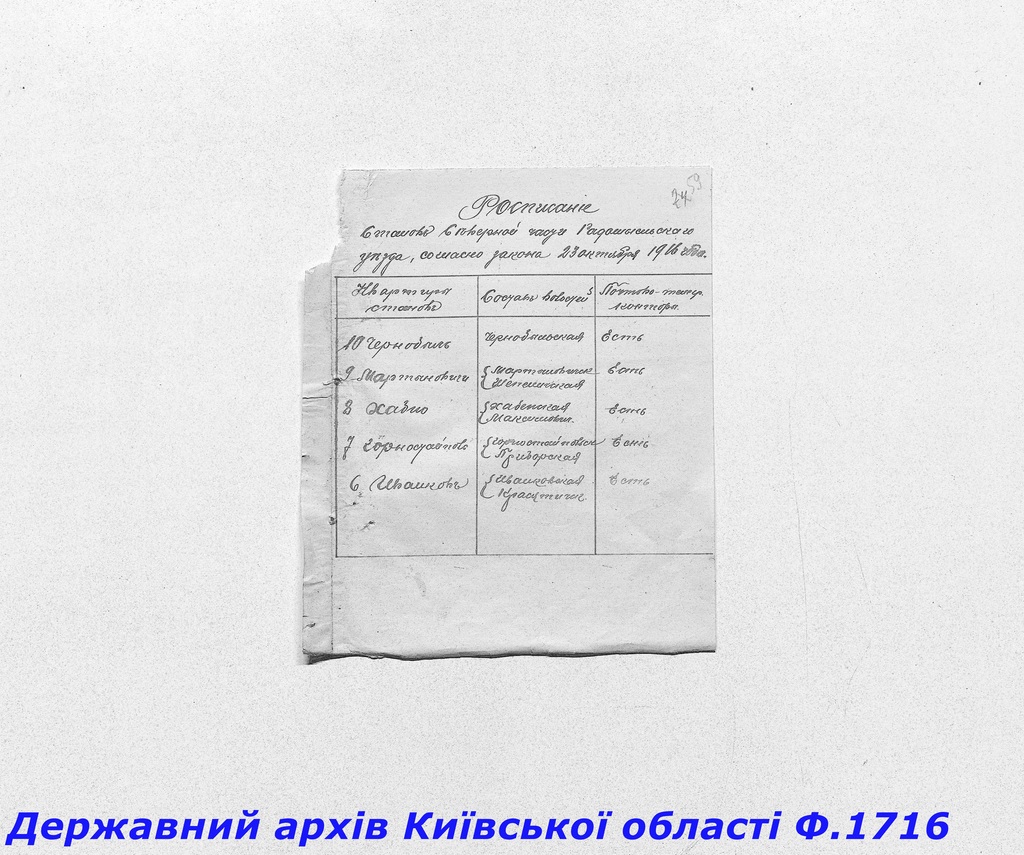 59
24
Росписаніе
Становъ Сѣверной части Радомысльского
уѣзда, согласно закона 23 октября 1916 года.
Квартиры
становъ
Составъ волостей
Почтово-телегр.
контора.
10 Чернобыль
Чернобыльская
Есть
9 Мартыновичи
Мартыновичск
Шепеличская
Есть
8 Хабно
Хабенская
Максимович.
Есть
7 Горностайполь
Горностайпольск
Приборская
Есть
6 Иванковъ
Иванковская
Красятичс.
Есть
Державний архів Київської області Ф.1716